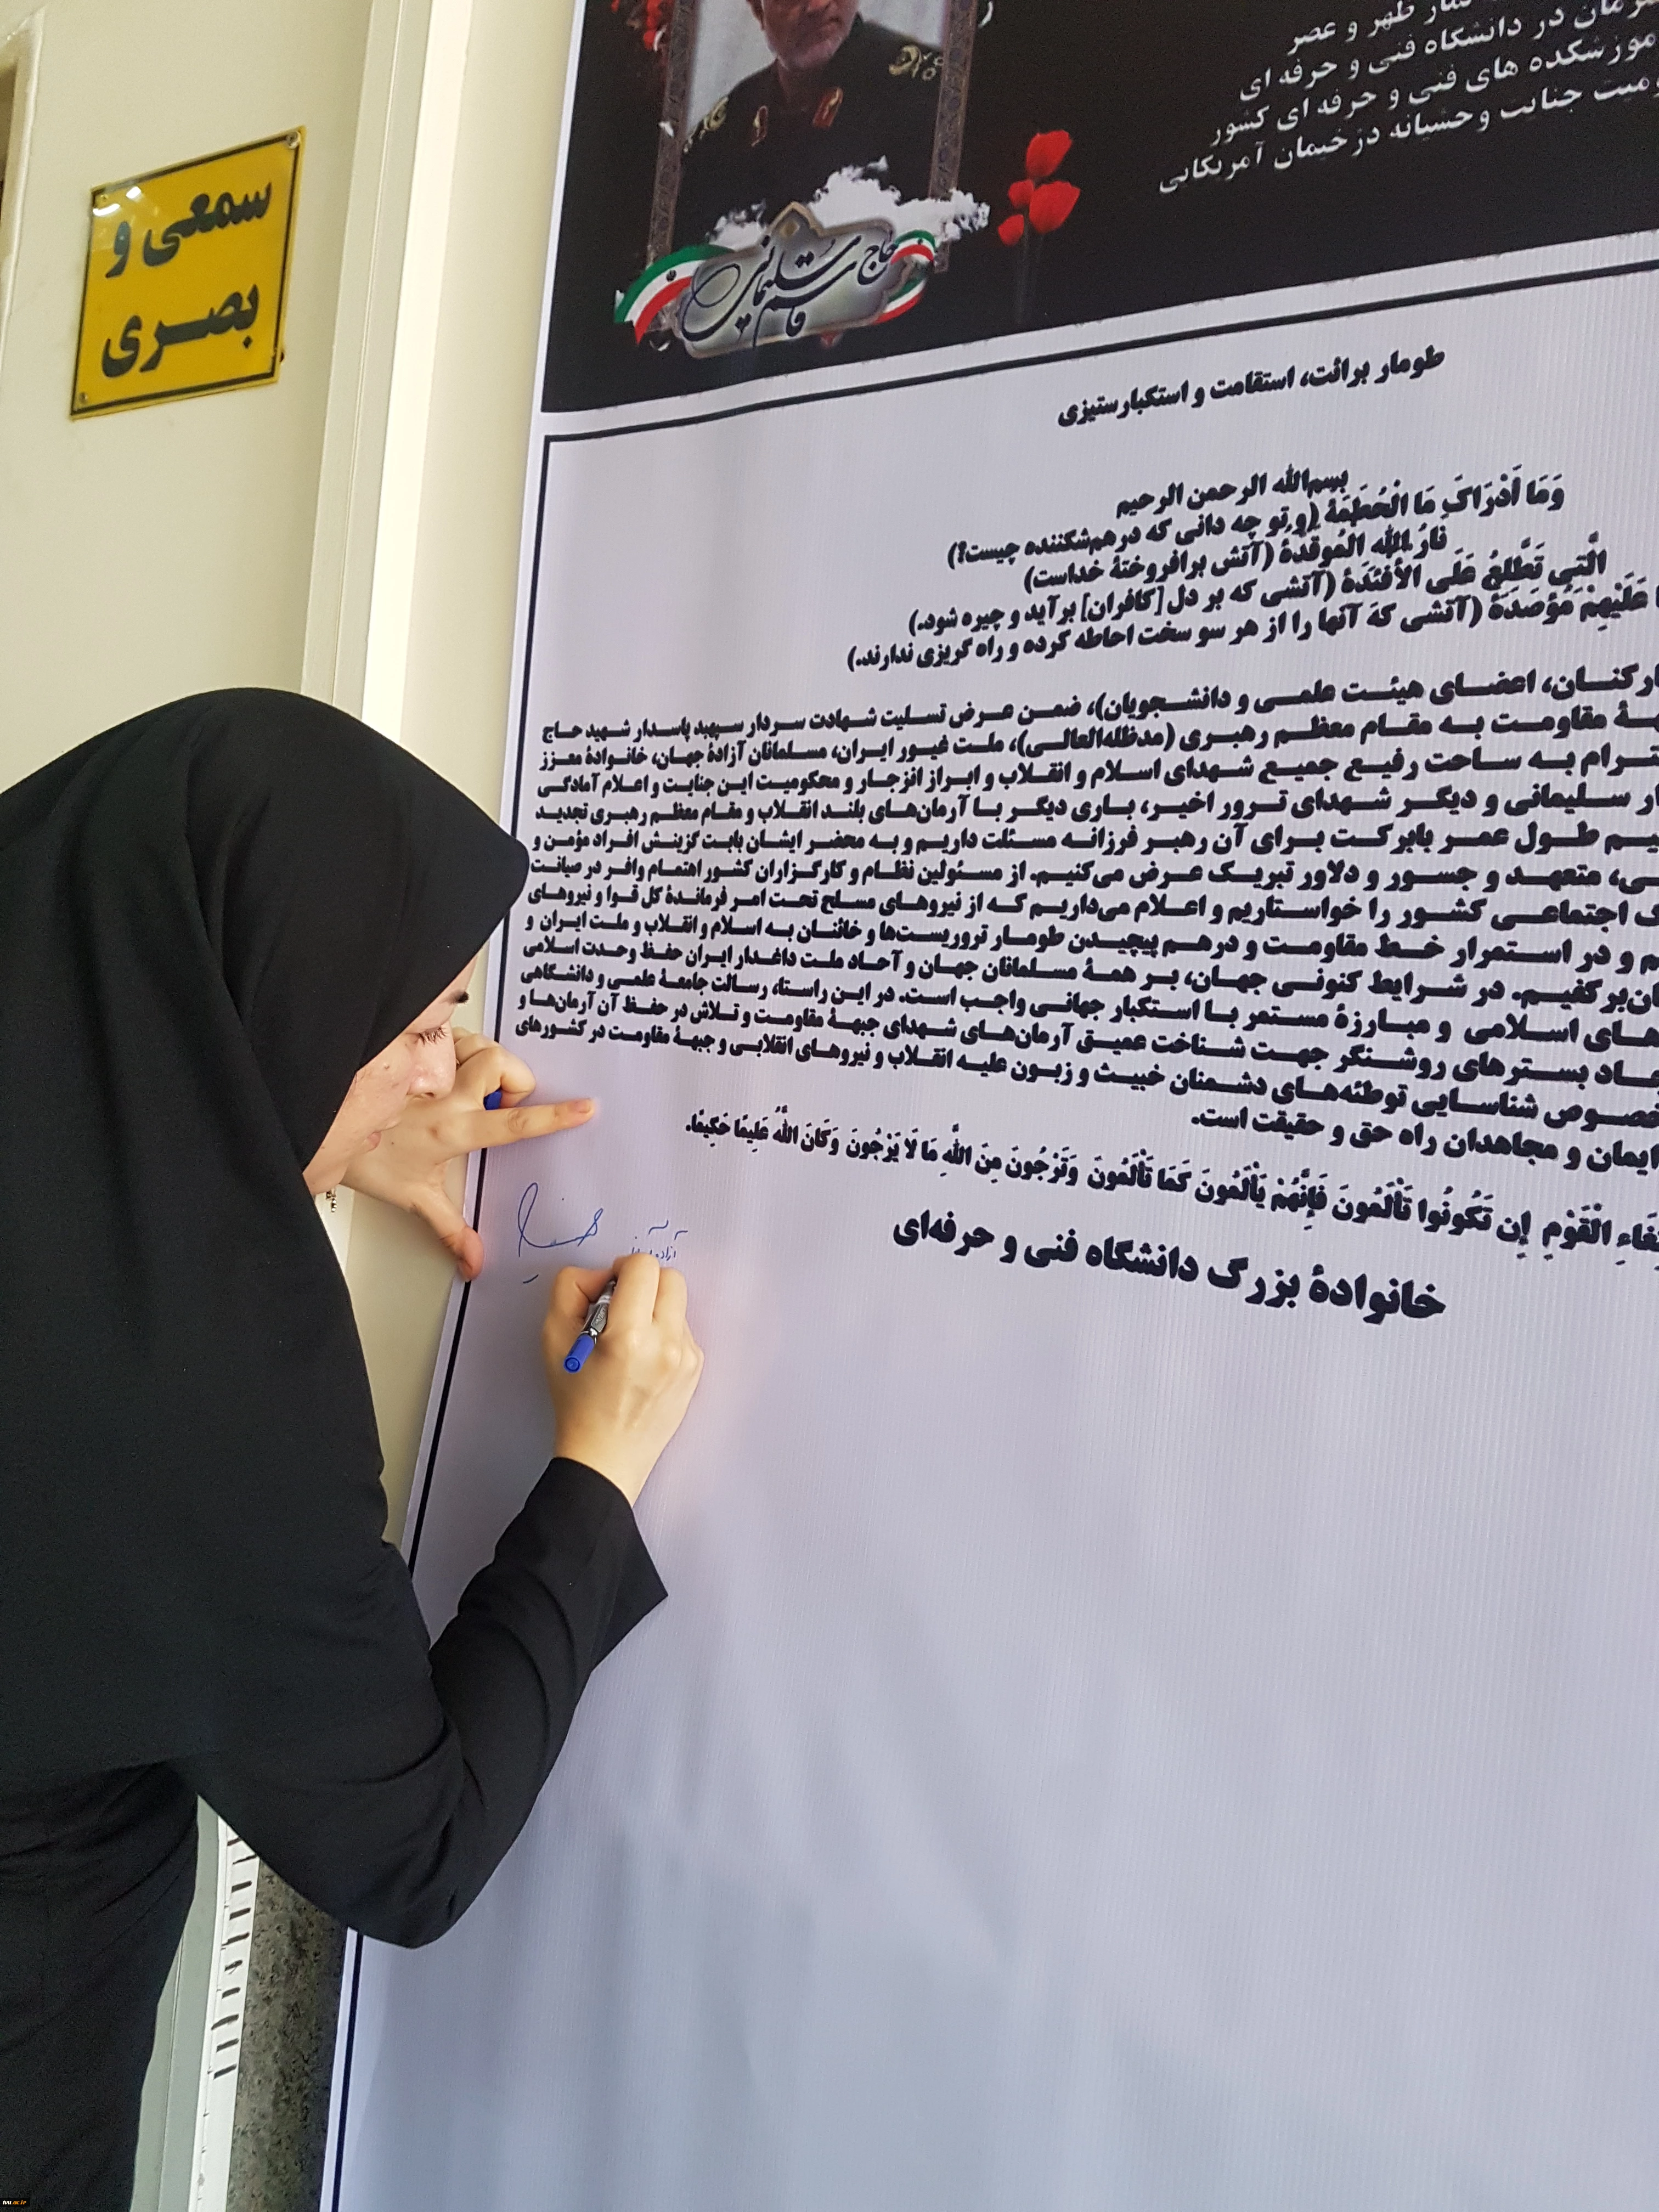 سمعی و
بصری
نماز ظهر و عصر
در دانشگاه فنی و حرفه ای
های فنی و حرفه ای کشور
جنایت وحشیانه دژخیمان آمریکایی
حاج قاسم سلیمانی
طومار برائت، استقامت و استکبارستیزی
بسم‌الله الرحمن الرحیم
وَمَا أَدْرَاكَ مَا الْحُطَمَةُ (و تو چه دانی که درهم‌شکننده چیست؟)
نارُ اللهِ المُوقَدَةُ (آتش برافروختهٔ خداست)
الَّتِي تَطَّلِعُ عَلَى الأَفئدَةُ (آتشی که بر دل [کافران] برآید و چیره شود.)
عَلَيْهِمْ مُؤْصَدَةُ (آتشی که آنها را از هر سو سخت احاطه کرده و راه گریزی ندارند.)
اعضای هیئت علمی و دانشجویان)، ضمن عرض تسلیت شهادت سردار سپهبد پاسدار شهید حاج
مقاومت به مقام معظم رهبری (مدظله‌العالی)، ملت غیور ایران، مسلمانان آزادهٔ جهان، خانوادهٔ معزز
به ساحت رفیع جمیع شهدای اسلام و انقلاب و ابراز انزجار و محکومیت این جنایت و اعلام آمادگی
سلیمانی و دیگر شهدای ترور اخیر، باری دیگر با آرمان‌های بلند انقلاب و مقام معظم رهبری تجدید
طول عمر بابرکت برای آن رهبر فرزانه مسئلت داریم و به محضر ایشان بابت گزینش افراد مؤمن و
متعهد و جسور و دلاور تبریک عرض می‌کنیم. از مسئولین نظام و کارگزاران کشور اهتمام وافر در صیانت
اجتماعی کشور را خواستاریم و اعلام می‌داریم که از نیروهای مسلح تحت امر فرماندهٔ کل قوا و نیروهای
و در استمرار خط مقاومت و درهم پیچیدن طومار تروریست‌ها و خائنان به اسلام و انقلاب و ملت ایران و
برکفیم. در شرایط کنونی جهان، بر همهٔ مسلمانان جهان و آحاد ملت داغدار ایران حفظ وحدت اسلامی
های اسلامی و مبارزهٔ مستمر با استکبار جهانی واجب است. در این راستا، رسالت جامعهٔ علمی و دانشگاهی
بسترهای روشنگر جهت شناخت عمیق آرمان‌های شهدای جبههٔ مقاومت و تلاش در حفظ آن آرمان‌ها و
شناسایی توطئه‌های دشمنان خبیث و زبون علیه انقلاب و نیروهای انقلابی و جبههٔ مقاومت در کشورهای
ایمان و مجاهدان راه حق و حقیقت است.
الْقَوْمِ إِن تَكُونُوا تَأْلَمُونَ فَإِنَّهُمْ يَأْلَمُونَ كَمَا تَأْلَمُونَ وَتَرْجُونَ مِنَ اللَّهِ مَا لَا يَرْجُونَ وَكَانَ اللَّهُ عَلِيمًا حَكِيمًا.
خانوادهٔ بزرگ دانشگاه فنی و حرفه‌ای
tvu.ac.ir